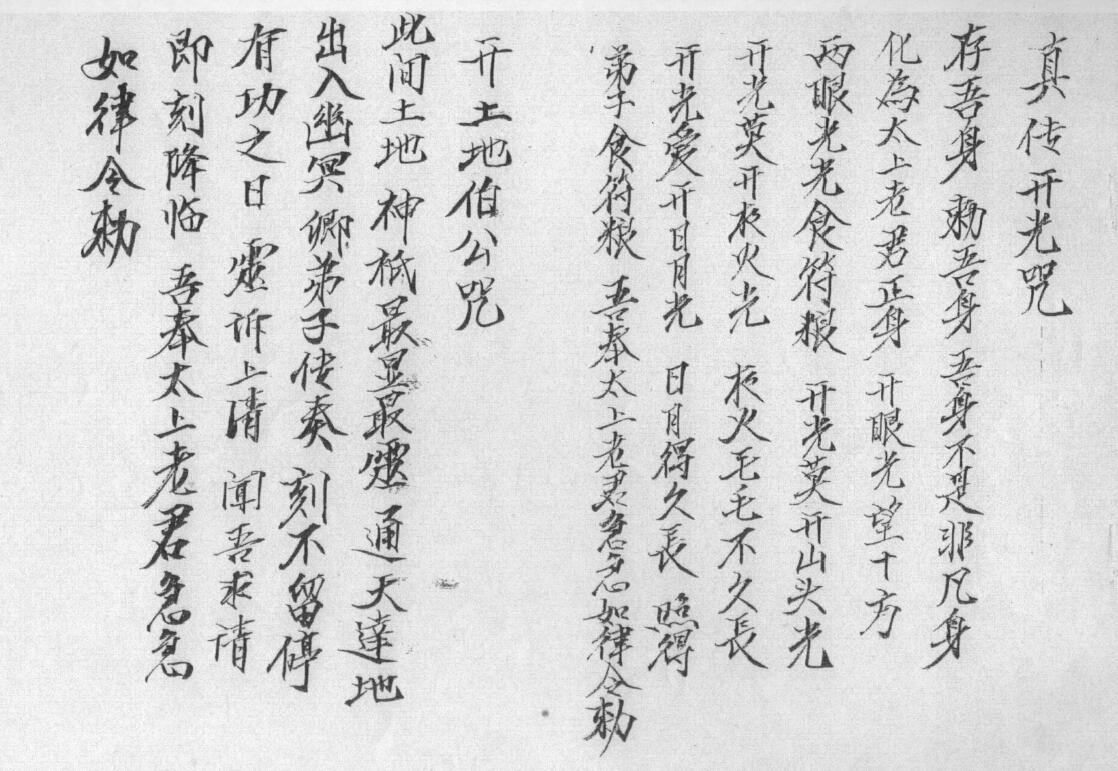 真传开光咒
存吾身 勅吾身 吾身不是非凡身
化為太上老君正身 开眼光望十方
两眼光光食符粮 开光莫开山头光
开光莫开夜火光 夜火毛毛不久長
开光爱开日月光 日月得久長 照得
弟子食符粮 吾奉太上老君急急如律令勅
开土地伯公咒
此间土地 神祇最显最靈 通天達地
出入幽冥 卿弟子传奏 刻不留停
有功之日 靈诉上清 闻吾求请
即刻降临 吾奉太上老君急急
如律令勅